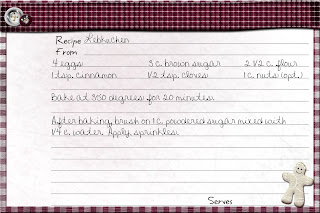 Recipe Lebkuchen
From
4 eggs 3 c. brown sugar 2 1/2 c. flour
1 tsp. cinnamon 1/2 tsp. cloves 1 c. nuts (opt.)
Bake at 350 degrees for 20 minutes.
After baking, brush on 1 c. powdered sugar mixed with
1/4 c. water. Apply sprinkles.
Serves